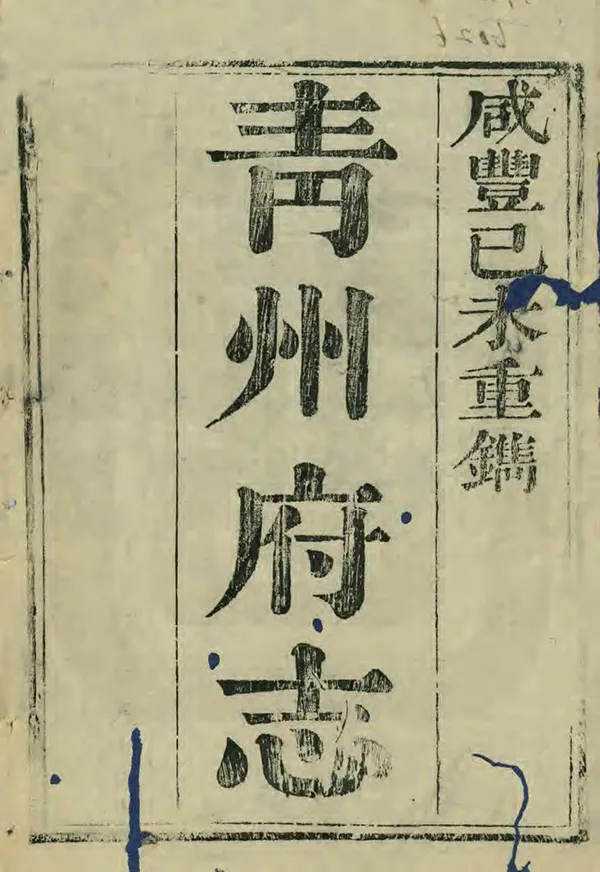 咸豐己未重鐫
青州府志
6026